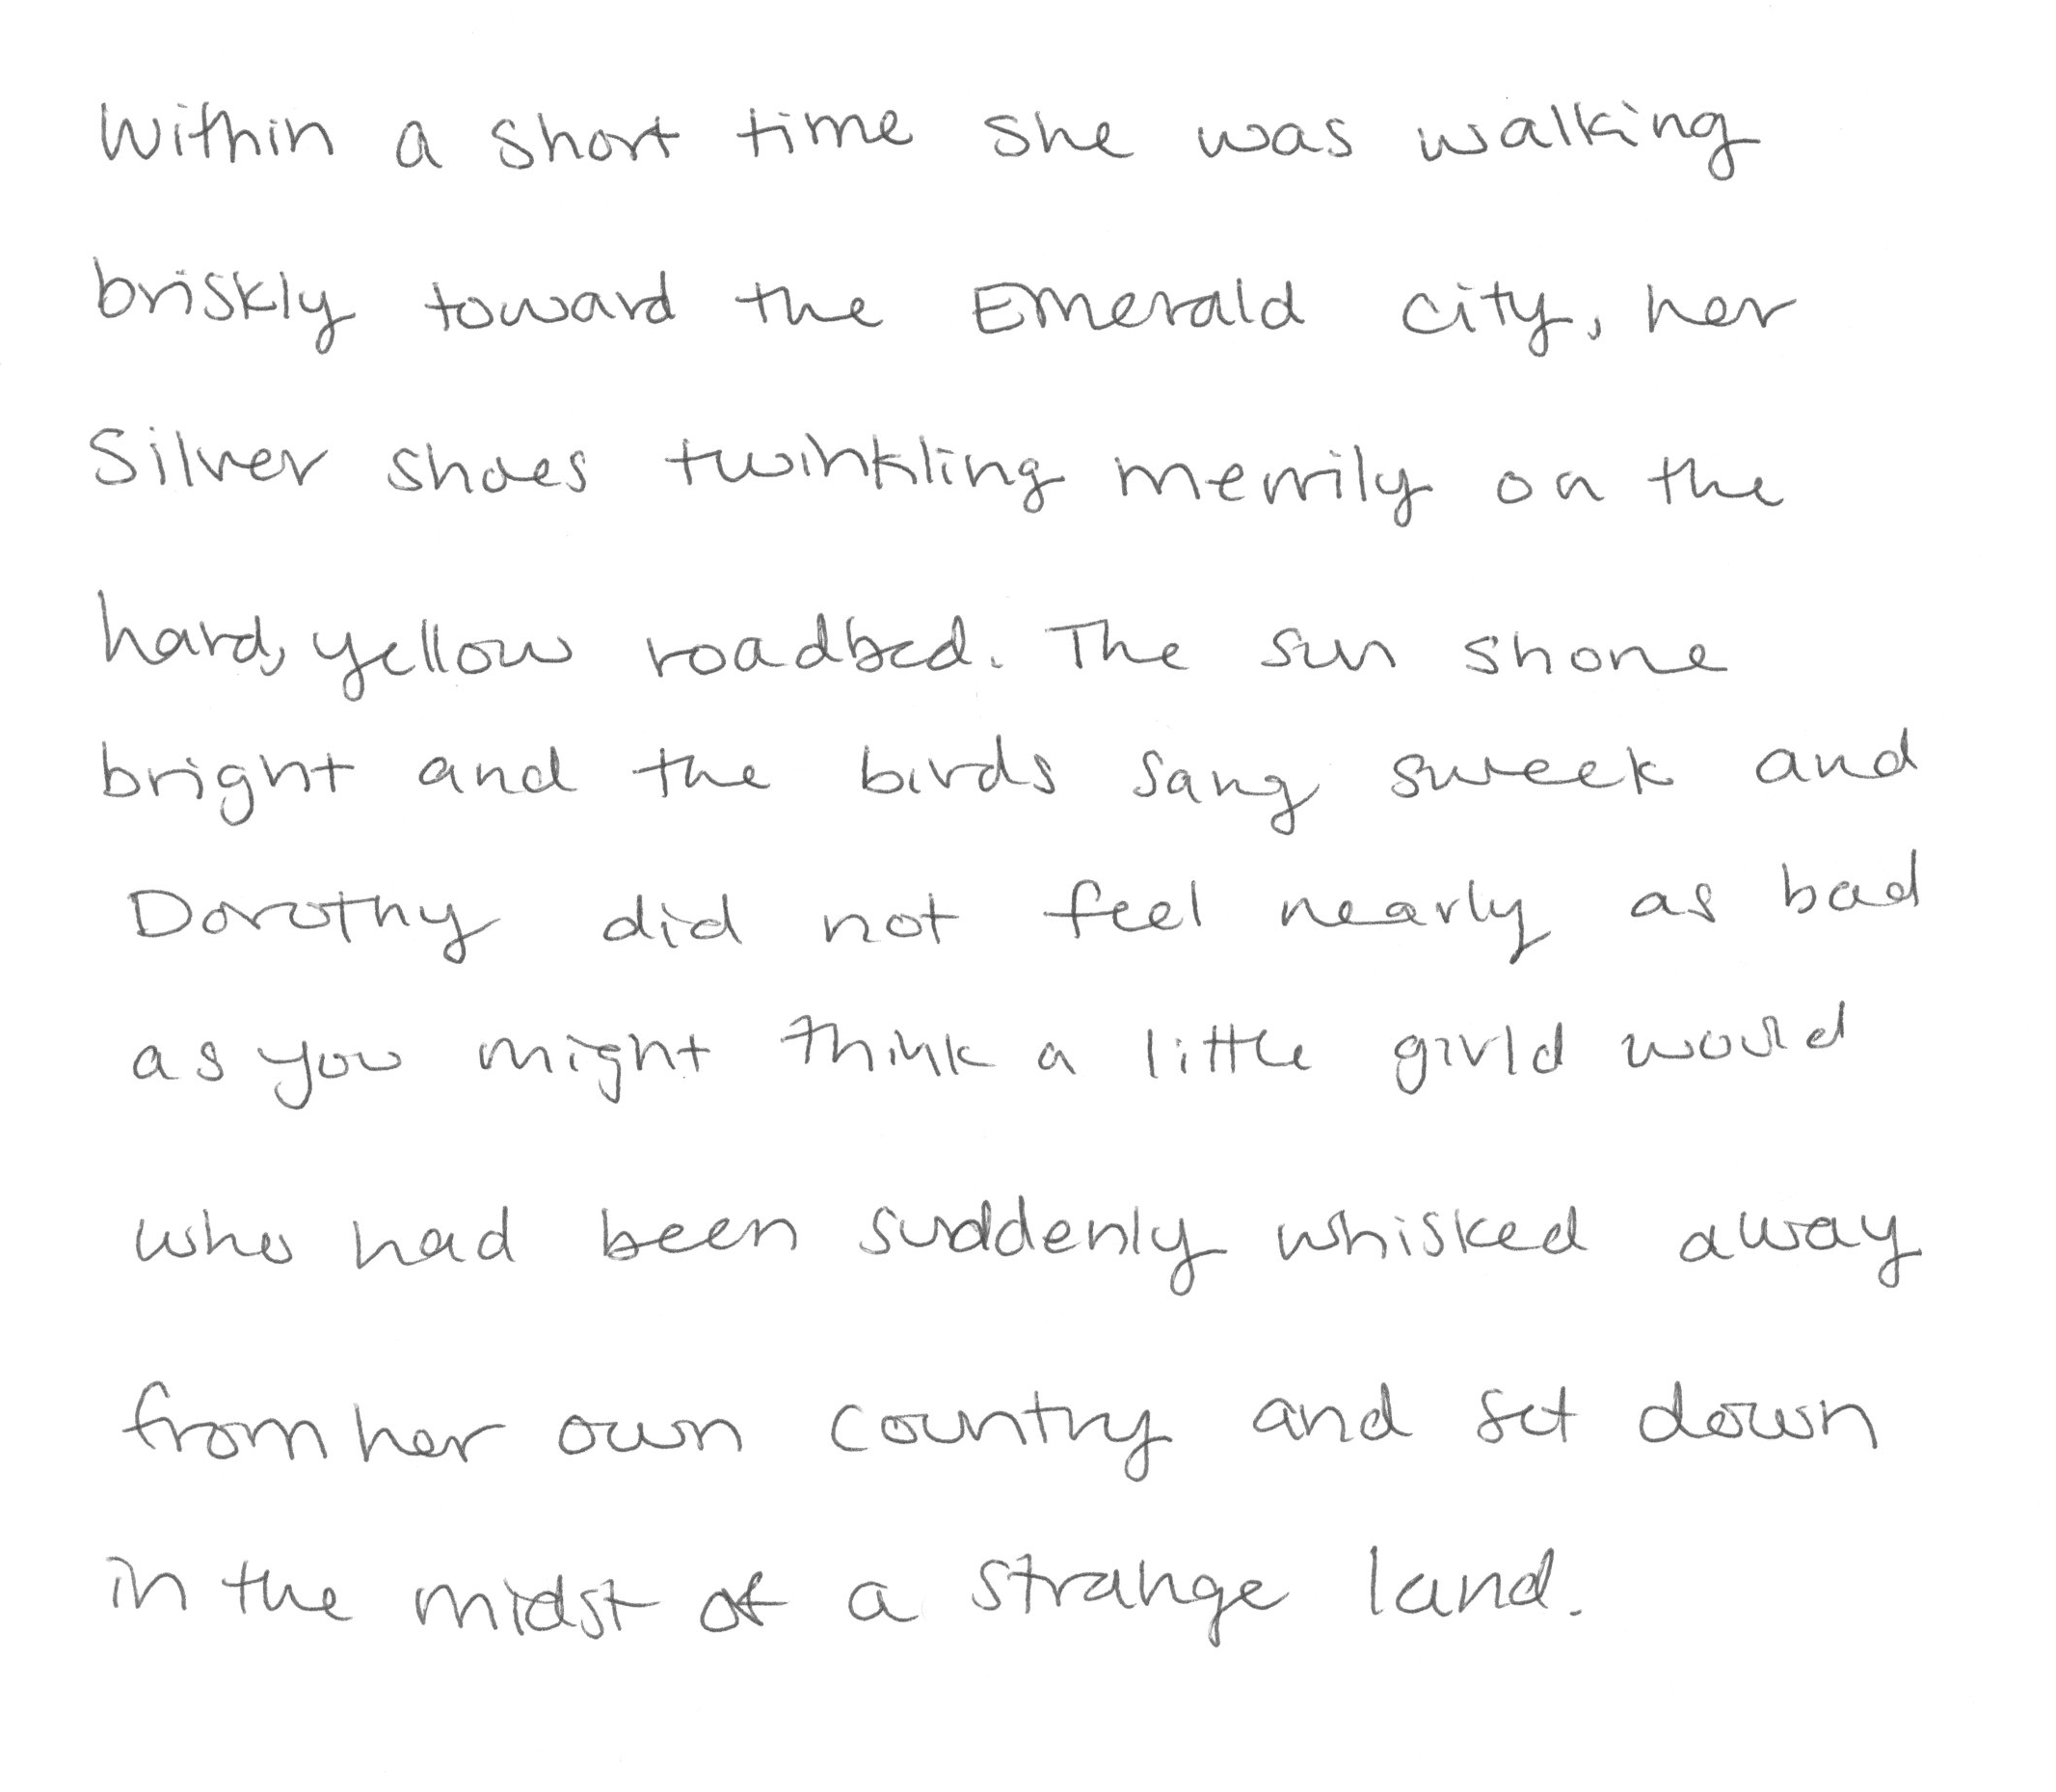 Within a short time she was walking
briskly toward the Emerald city, her
Silver shoes twinkling merrily on the
hard, yellow roadbed. The sun shone
bright and the birds sang sweek and
Dorothy did not feel nearly as bad
as you might think a little girld would
who had been suddenly whisked away
from her own country and set down
in the midst of a strange land.